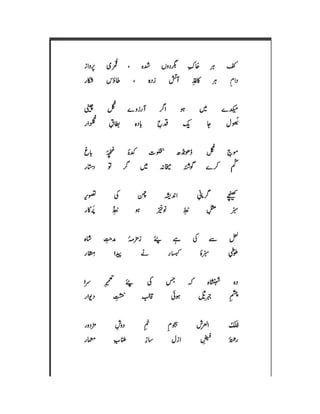 کف ہر خاکِ بگردوں شدہ ، قُمری پرواز
دامِ ہر کاغذِ آتش زدہ ، طاؤس شکار
میکدے میں ہو اگر آرزوے گل چینی
بھُول جا یک قدحِ بادہ بطاقِ گلزار
موجِ گل ڈھونڈھ بخلوت کدۂ غنچۂ باغ
گُم کرے گوشۂ میخانہ میں گر تو دستار
کھینچے گر مانیِ اندیشہ چمن کی تصویر
سبز مثلِ خطِ نوخیز ہو خطِ پرکار
لعل سے کی ہے پئے زمزمۂ مدحتِ شاہ
طوطیِ سبزۂ کہسار نے پیدا منقار
وہ شہنشاہ کہ جس کی پئے تعمیرِ سرا
چشمِ جبریل ہوئی قالبِ خشتِ دیوار
فلک العرش ہجومِ خمِ دوشِ مزدور
رشتۂ فیضِ ازل سازِ طنابِ معمار